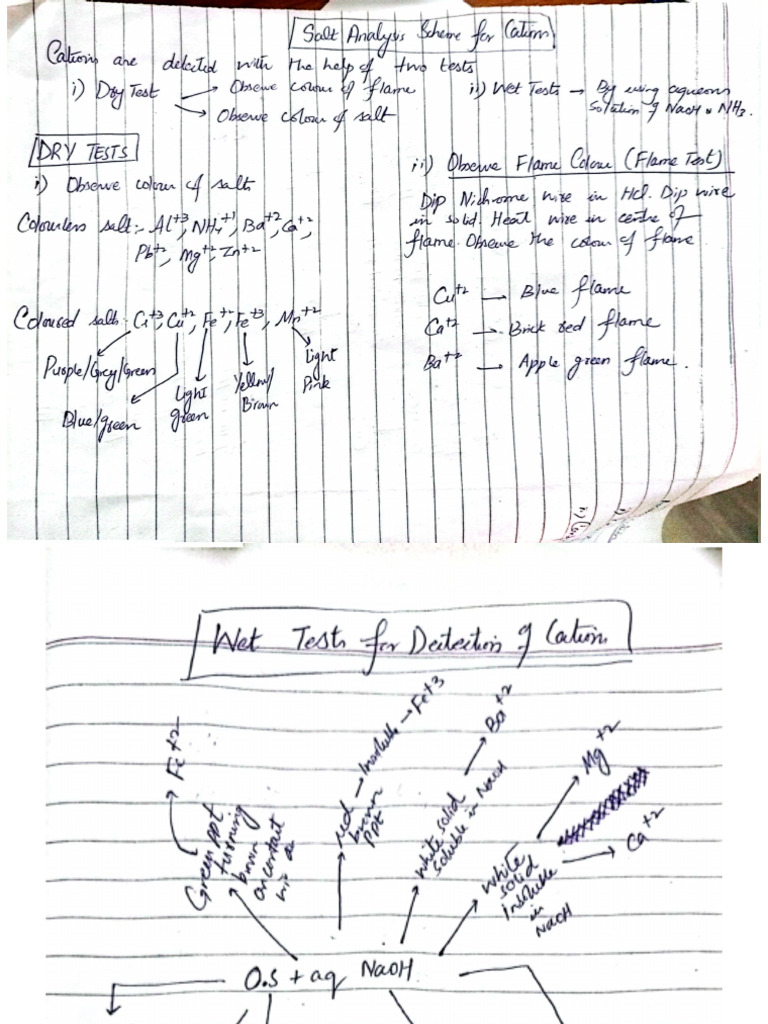 Salt Analysis Scheme for Cation
Cations are detected with the help of two tests
i) Dry Test → Observe colour of flame
→ Observe colour of salt
ii) Wet Tests → By using aqueous
solution of NaOH & NH3.
DRY TESTS
i) Observe colour of salts
Colourless salt:- Al+3, NH4+1, Ba+2, Ca+2,
Pb+2, Mg+2, Zn+2
Coloured salt:- Cr+3, Cu+2, Fe+2, Fe+3, Mn+2
Purple/Grey/Green
Blue/green
Light
green
Yellow/
Brown
Light
Pink
ii) Observe Flame Colour (Flame Test)
Dip Nichrome wire in HCl. Dip wire
in solid. Heat wire in centre of
flame. Observe the colour of flame.
Cu+2 → Blue flame
Ca+2 → Brick red flame
Ba+2 → Apple green flame.
Wet Tests for Detection of Cation
Fe+2
Green ppt
turning
brown
on contact
red
brown
ppt
→ Insoluble → Fe+3
white solid
soluble in NaOH
Ba+2
white
solid
insoluble
in
NaOH
Mg+2
Ca+2
O.S + aq NaOH